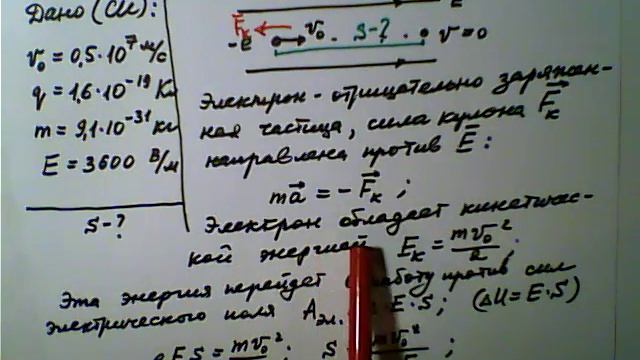 Дано (СИ):
v₀ = 0,5·10⁷ м/с
q = 1,6·10⁻¹⁹ Кл
m = 9,1·10⁻³¹ кг
E = 3600 В/м
S-?
E
Fк
-e
v₀
S-?
v=0
Электрон - отрицательно заряжен-
ная частица, сила кулона F⃗к
направлена против E⃗:
ma⃗ = -F⃗к ;
Электрон обладает кинетичес-
кой энергией Eк = mv₀²/2 ;
Эта энергия перейдет работу против сил
электрического поля Aэл. E·S; (ΔU=E·S)
eES = mv₀² ; S mv₀² ;